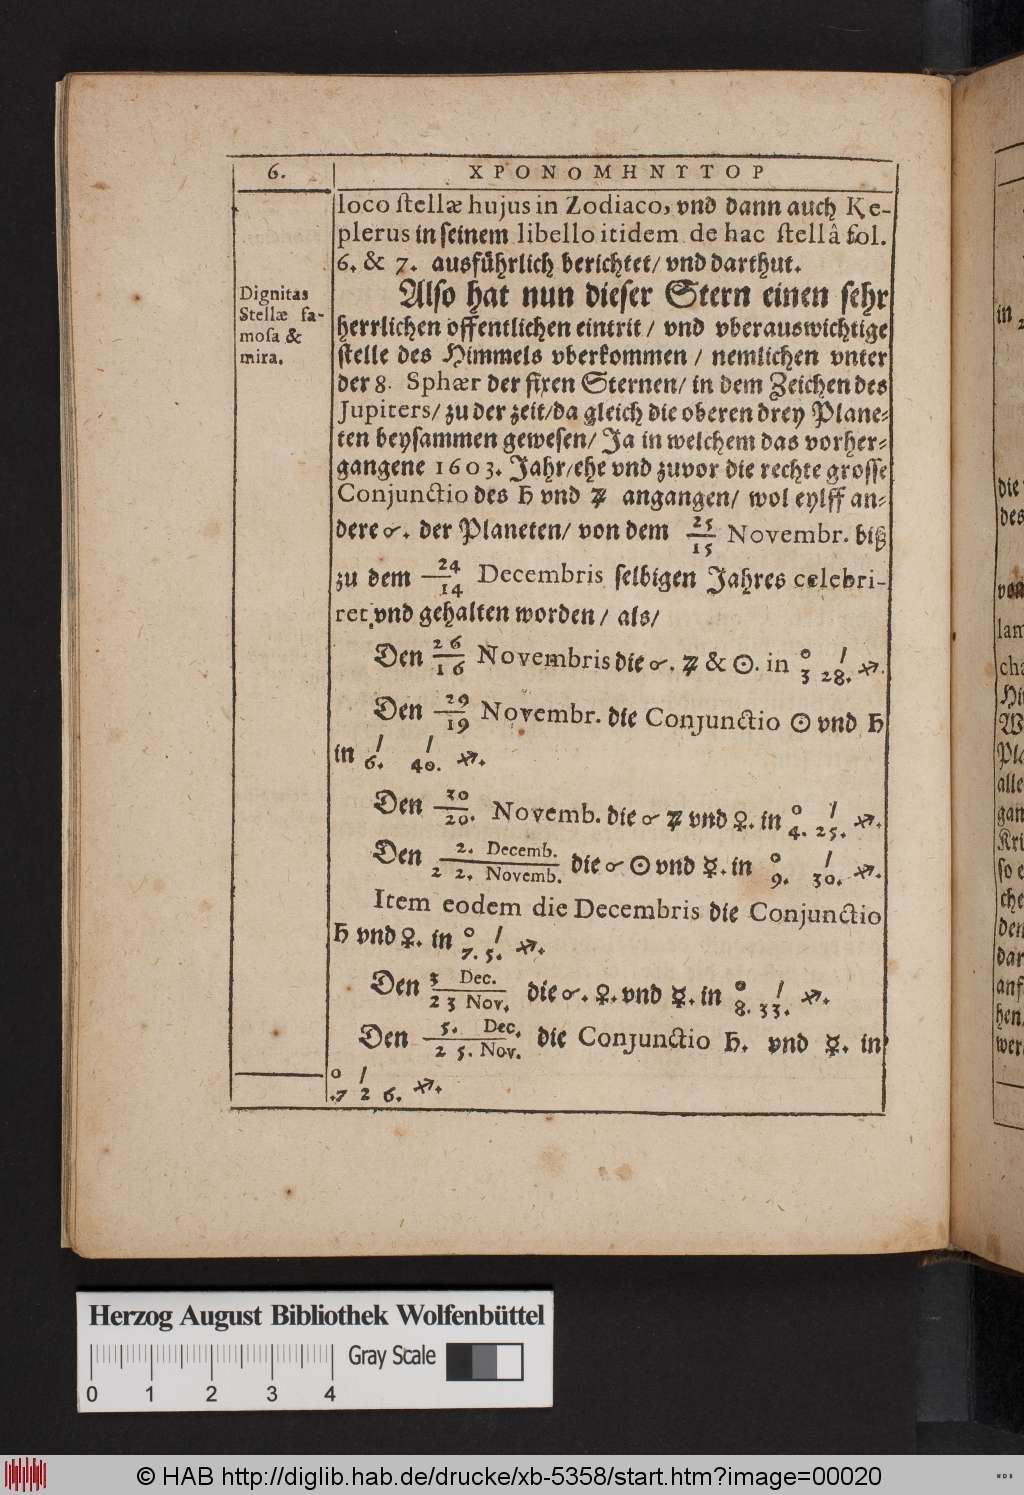 6.
ΧΡΟΝΟΜΗΝΥΤΟΡ
loco stellæ hujus in Zodiaco, vnd dann auch Ke-
plerus in seinem libello itidem de hac stellâ fol.
6. & 7. außführlich berichtet/ vnd darthut.
Dignitas
Stellæ fa-
mosa &
mira.
Also hat nun dieser Stern einen sehr
herrlichen offentlichen eintrit/ vnd vberauswichtige
stelle des Himmels vberkommen/ nemlichen vnter
der 8. Sphær der fixen Sternen/ in dem Zeichen des
Jupiters/ zu der zeit/ da gleich die oberen drey Plane-
ten beysammen gewesen/ Ja in welchem das vorher-
gangene 1603. Jahr/ ehe vnd zuvor die rechte grosse
Conjunctio des ♄ vnd ♃ angangen/ wol eylff an-
dere ☌. der Planeten/ von dem 25/15 Novembr. biß
zu dem 24/14 Decembris selbigen Jahres celebri-
ret vnd gehalten worden/ als/
Den 26/16 Novembris die ☌. ♃ & ☉. in 3° 28.′ ♐.
Den 29/19 Novembr. die Conjunctio ☉ vnd ♄
in 6.′ 40.′ ♐.
Den 30/20. Novemb. die ☌ ♃ vnd ♀. in 4.° 25.′ ♐.
Den 2. Decemb./22. Novemb. die ☌ ☉ vnd ☿. in 9.° 30.′ ♐.
Item eodem die Decembris die Conjunctio
♄ vnd ♀. in 7.° 5.′ ♐.
Den 3 Dec./23 Nov. die ☌. ♀. vnd ☿. in 8.° 33.′ ♐.
Den 5. Dec./25. Nov. die Conjunctio ♄. vnd ☿. in
.7° 26.′ ♐.
in
die
des
von
lam
cha
Hi
W
Pla
alle
gan
Kri
so e
che
den
dar
anf
hen
wer
Herzog August Bibliothek Wolfenbüttel
Gray Scale
0 1 2 3 4
© HAB http://diglib.hab.de/drucke/xb-5358/start.htm?image=00020